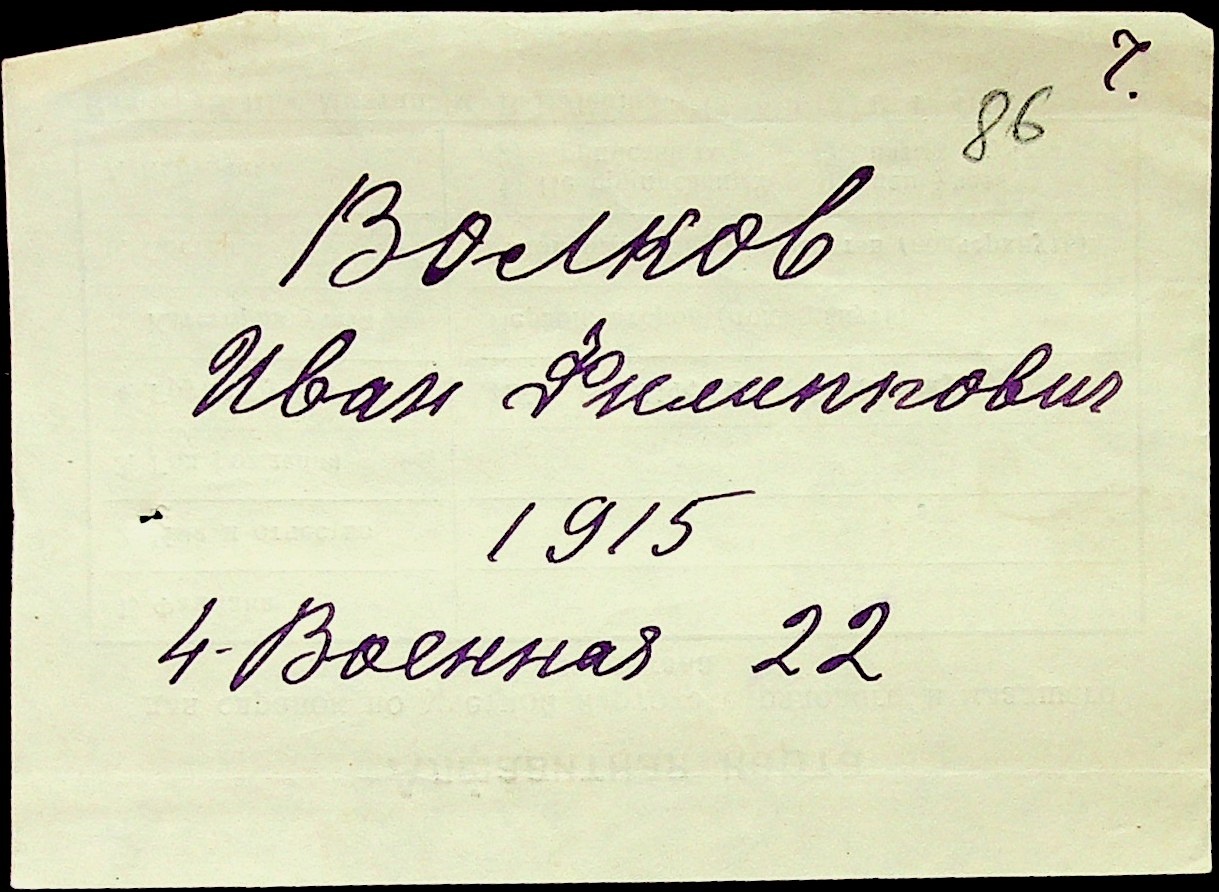 7.
86
Волков
Иван Филиппович
1915
4-Военная 22